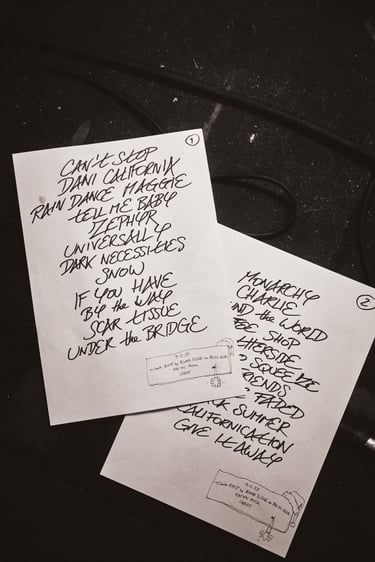 1
CAN'T STOP
DANI CALIFORNIA
RAIN DANCE MAGGIE
TELL ME BABY
ZEPHYR
UNIVERSALLY
DARK NECESSITIES
SNOW
IF YOU HAVE
BY the WAY
SCAR TISSUE
UNDER the BRIDGE
2
MONARCHY
CHARLIE
the WORLD
SHOP
SQUEEZE
SUMMER
CALIFORNICATION
GIVE IT AWAY